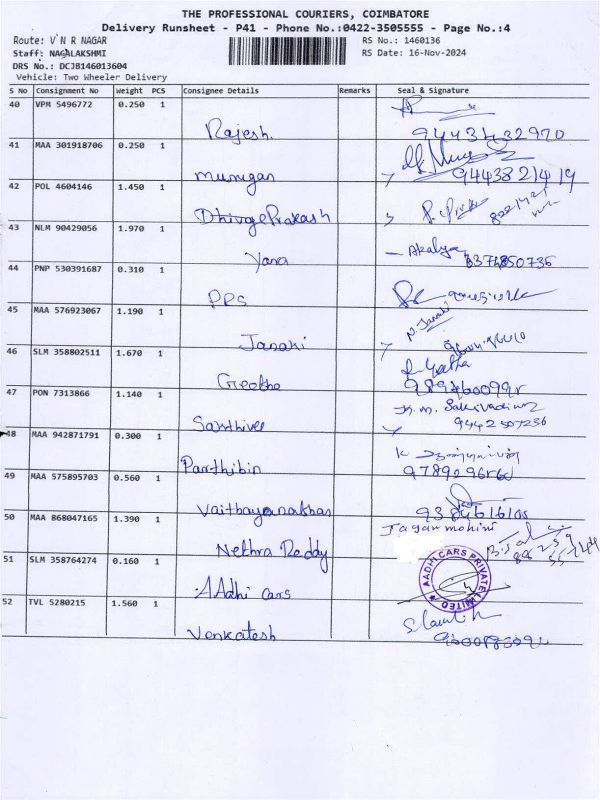 THE PROFESSIONAL COURIERS, COIMBATORE
Delivery Runsheet - P41 - Phone No.:0422-3505555 - Page No.:4
Route: V N R NAGAR
RS No.: 1460136
Staff: NAGALAKSHMI
RS Date: 16-Nov-2024
DRS No.: DCJB146013604
Vehicle: Two Wheeler Delivery
S No Consignment No Weight PCS Consignee Details Remarks Seal & Signature
40 VPM 5496772 0.250 1
Rajesh. 9443432970
41 MAA 301918706 0.250 1
Murugan 9443821419
42 POL 4604146 1.450 1
43 NLM 90429056 1.970 1
Yana Akalya
44 PNP 530391687 0.310 1
PPS
45 MAA 576923067 1.190 1
Janaki
46 SLM 358802511 1.670 1
Geetha
47 PON 7313866 1.140 1
9442507236
48 MAA 942871791 0.300 1
Parthibin
49 MAA 575895703 0.560 1
50 MAA 868047165 1.390 1
Jagan mohini
Nethra Reddy
51 SLM 358764274 0.160 1
AADHI CARS PRIVATE LIMITED
AAdhi cars
52 TVL 5280215 1.560 1
Venkatesh